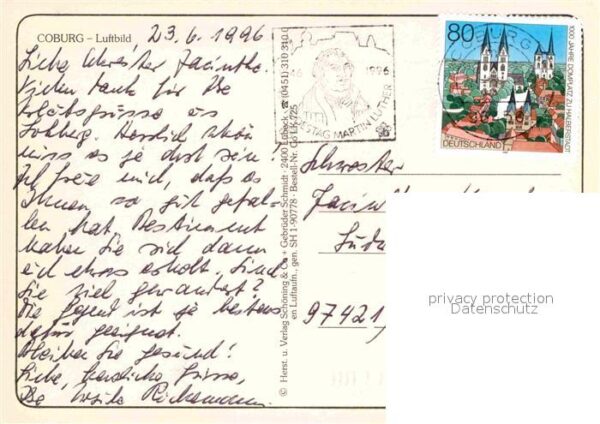 COBURG – Luftbild
23.6.1996
Liebe Schwester Jacintha.
Vielen Dank für Ihre
Urlaubsgrüsse aus
Herrlich schön
muss es ja dort sein!
Ich freue mich, dass es
Ihnen so gut gefal-
len hat. Bestimmt
haben Sie sich dann
auch etwas erholt. Sind
Sie viel gewandert?
Die Gegend ist ja bestens
dafür geeignet.
Bleiben Sie gesund!
Liebe, herzliche Grüsse,
Ihre
© Herst. u. Verlag Schöning & Co + Gebrüder Schmidt · 2400 Lübeck ☎ (0451) 310 310
en Luftaufn., gen. SH 1-90778 · Bestell-Nr. Co LK 725
1996
TAG MARTIN LUTHER
COBURG
80
DEUTSCHLAND
1000 JAHRE DOMPLATZ ZU HALBERSTADT
Schwester
97421
privacy protection
Datenschutz